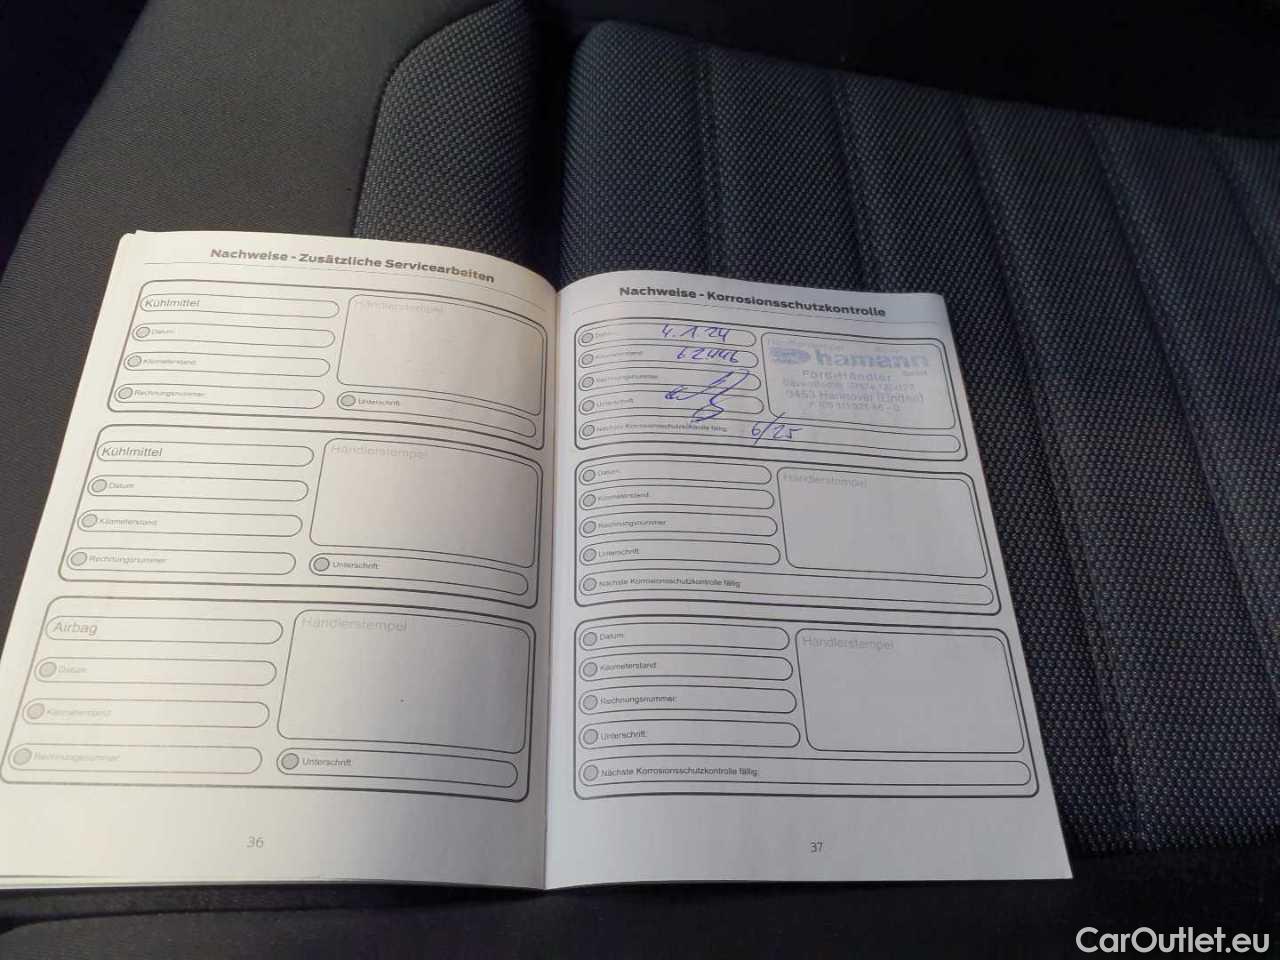 Nachweise - Zusätzliche Servicearbeiten
Kühlmittel
Händlerstempel
Datum:
Kilometerstand:
Rechnungsnummer:
Unterschrift:
Kühlmittel
Händlerstempel
Datum:
Kilometerstand:
Rechnungsnummer:
Unterschrift:
Airbag
Händlerstempel
Datum:
Kilometerstand:
Rechnungsnummer:
Unterschrift:
36
Nachweise - Korrosionsschutzkontrolle
Datum: 4.1.24
Kilometerstand: 62446
Rechnungsnummer:
Unterschrift:
Händlerstempel
hamann
GmbH
Ford-Händler
Hannover (Linden)
Nächste Korrosionsschutzkontrolle fällig: 6/25
Datum:
Händlerstempel
Kilometerstand:
Rechnungsnummer:
Unterschrift:
Nächste Korrosionsschutzkontrolle fällig:
Datum:
Händlerstempel
Kilometerstand:
Rechnungsnummer:
Unterschrift:
Nächste Korrosionsschutzkontrolle fällig:
37
CarOutlet.eu